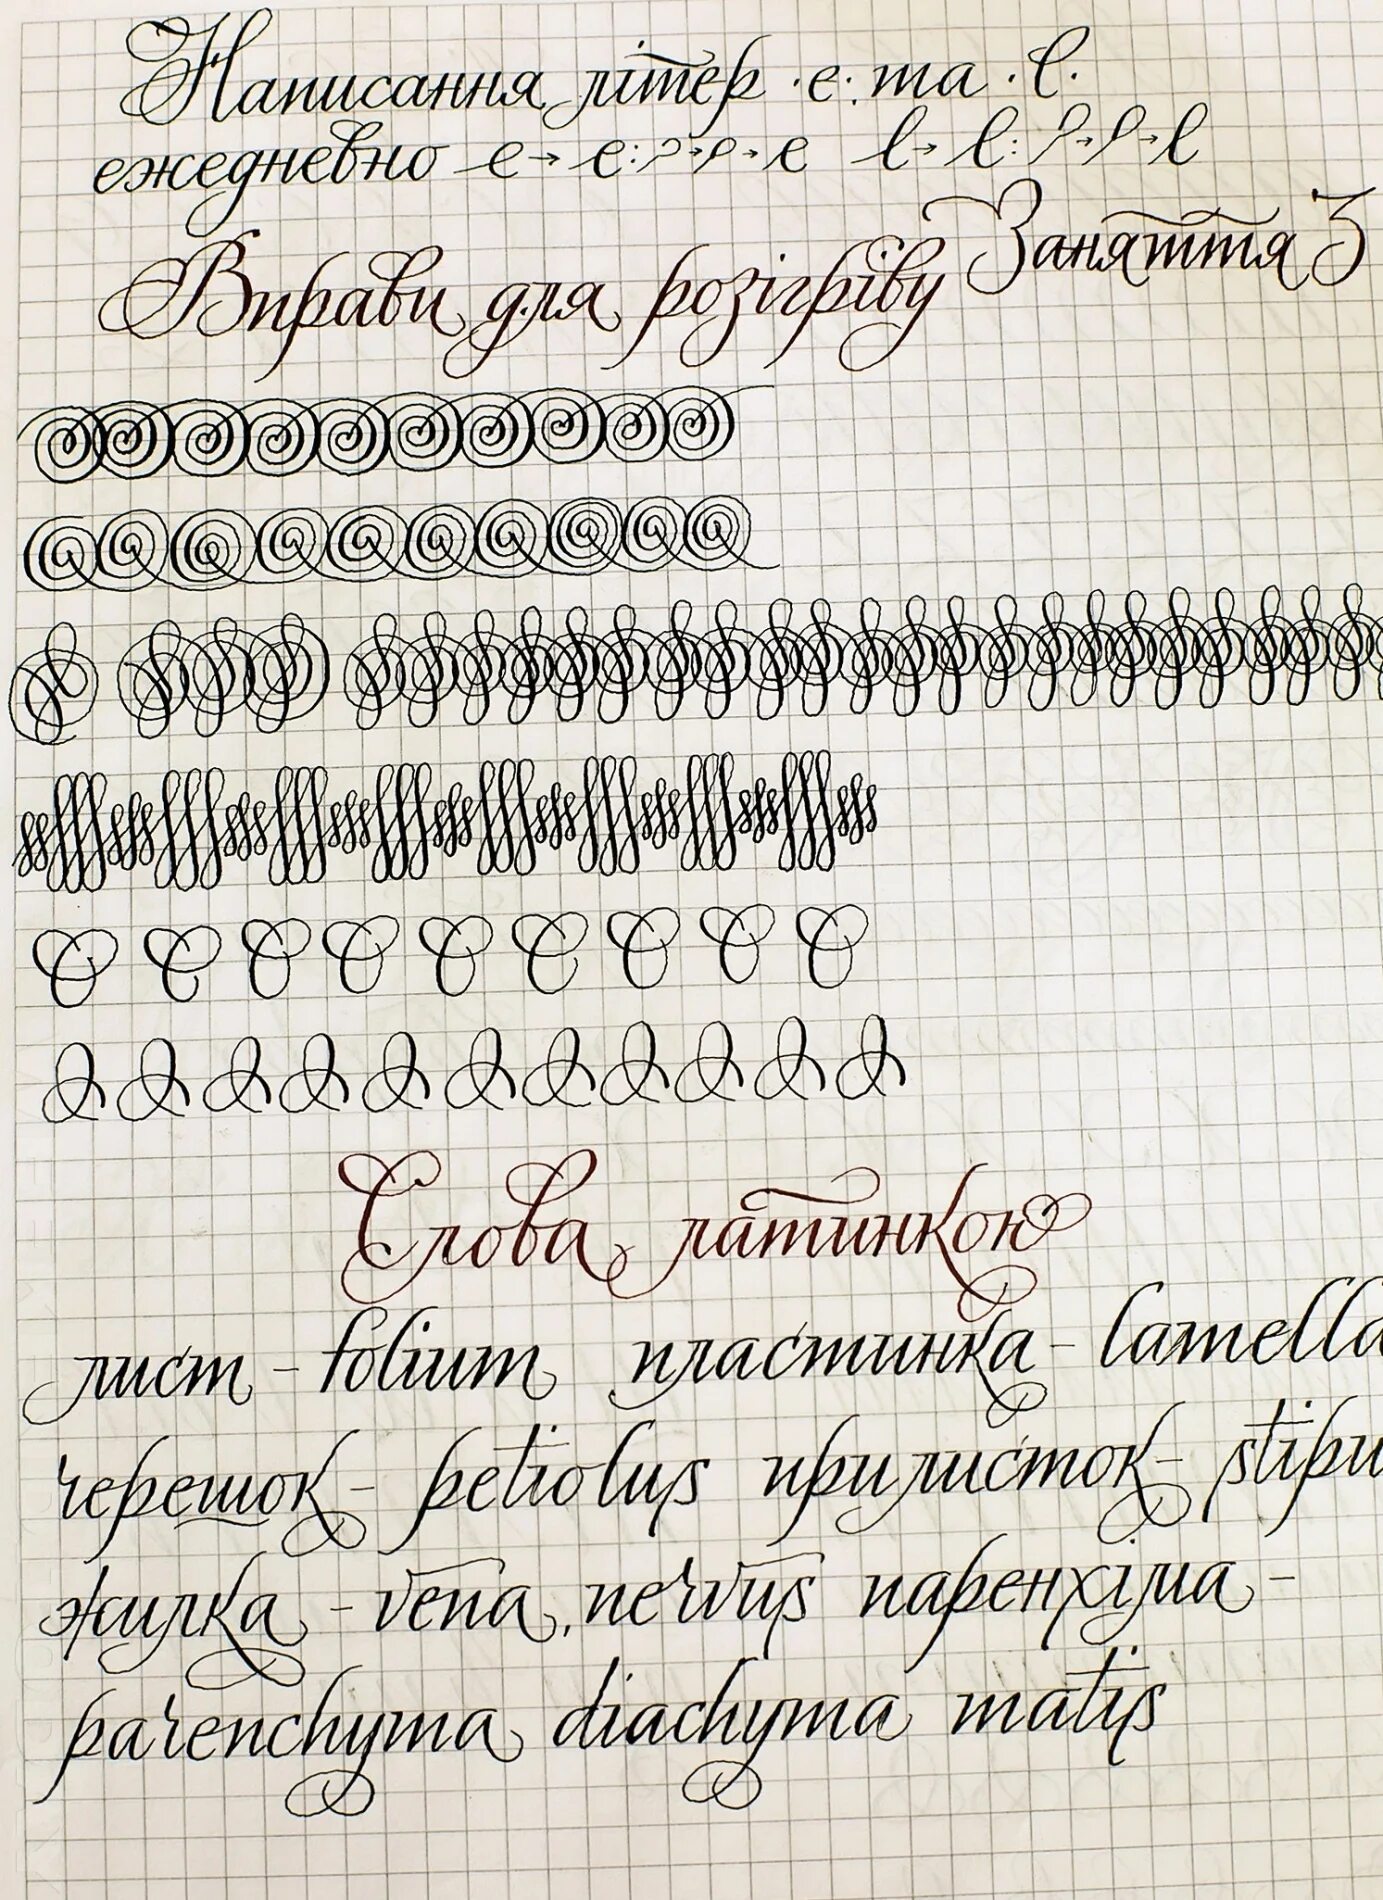 Написання літер ·е· та ·l·
ежедневно е → е: → → е l → l: → → l
Заняття 3
Вправи для розігріву
Слова латинкою
лист – folium пластинка – lamella
черешок – petiolus прилисток – stipu
жилка – vena, nervus паренхіма –
parenchyma diachyma matis